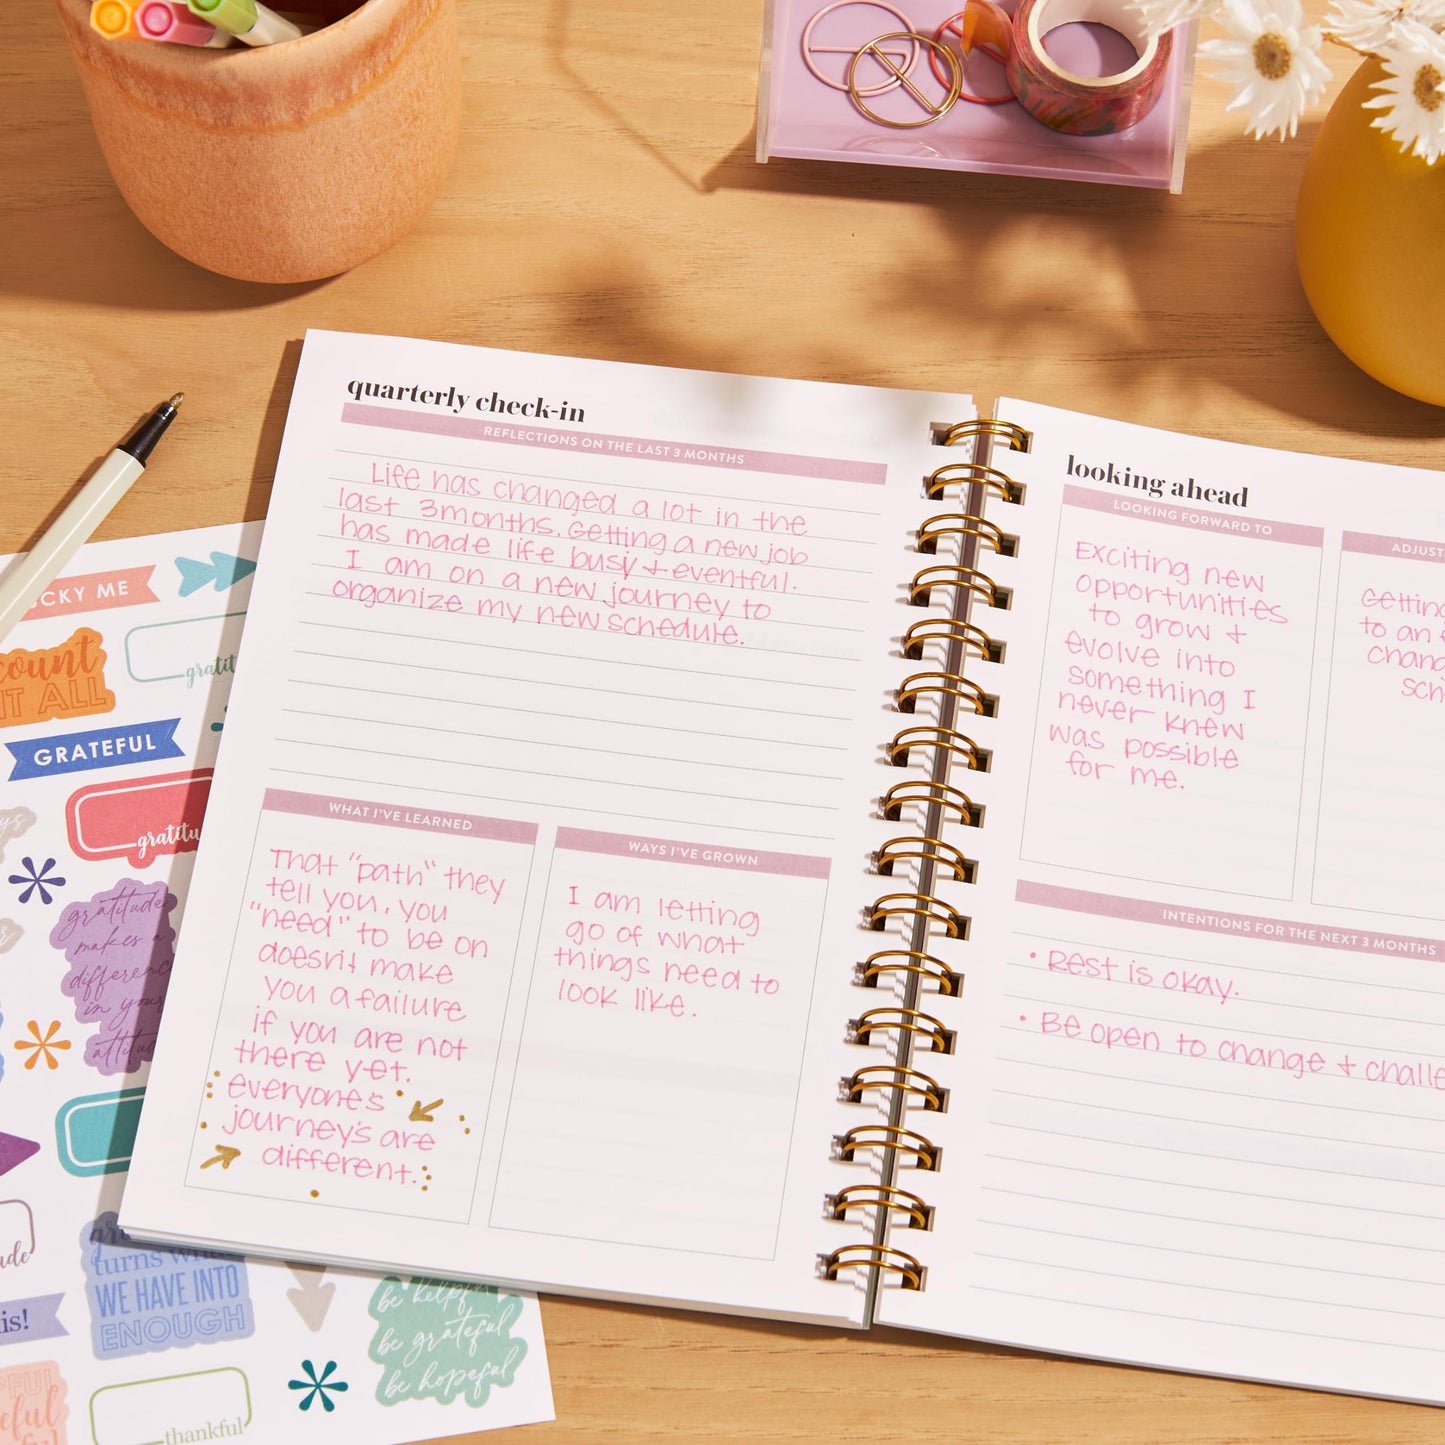 quarterly check-in
REFLECTIONS ON THE LAST 3 MONTHS
Life has changed a lot in the
last 3 months. Getting a new job
has made life busy + eventful.
I am on a new journey to
organize my new schedule.
WHAT I'VE LEARNED
That "path" they
tell you, you
"need" to be on
doesn't make
you a failure
if you are not
there yet.
everyone's
journey's are
different.
WAYS I'VE GROWN
I am letting
go of what
things need to
look like.
looking ahead
LOOKING FORWARD TO
Exciting new
opportunities
to grow +
evolve into
something I
never knew
was possible
for me.
ADJUST
Getting
to an
chang
sch
INTENTIONS FOR THE NEXT 3 MONTHS
• Rest is okay.
• Be open to change + challe
CKY ME
count
IT ALL
gratit
GRATEFUL
gratitu
gratitude
makes a
difference
in your
attitude
ude
turns what
WE HAVE INTO
ENOUGH
is!
be helpful
be grateful
be hopeful
thankful